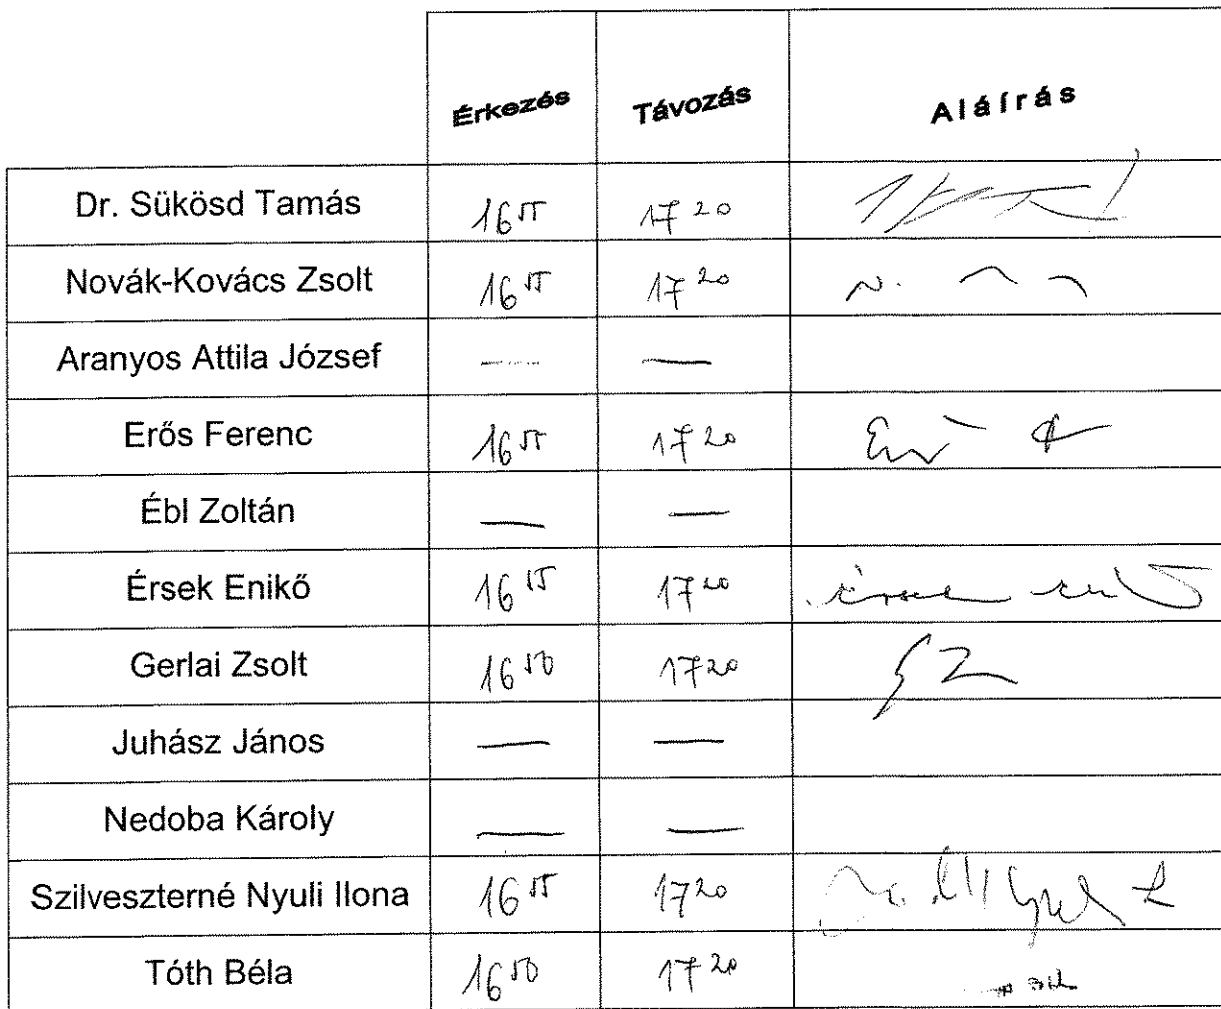 Érkezés Távozás Aláírás
Dr. Sükösd Tamás 16 55 17 20
Novák-Kovács Zsolt 16 55 17 20
Aranyos Attila József — —
Erős Ferenc 16 55 17 20
Ébl Zoltán — —
Érsek Enikő 16 55 17 20
Gerlai Zsolt 16 50 17 20 GZ
Juhász János — —
Nedoba Károly — —
Szilveszterné Nyuli Ilona 16 55 17 20
Tóth Béla 16 50 17 20